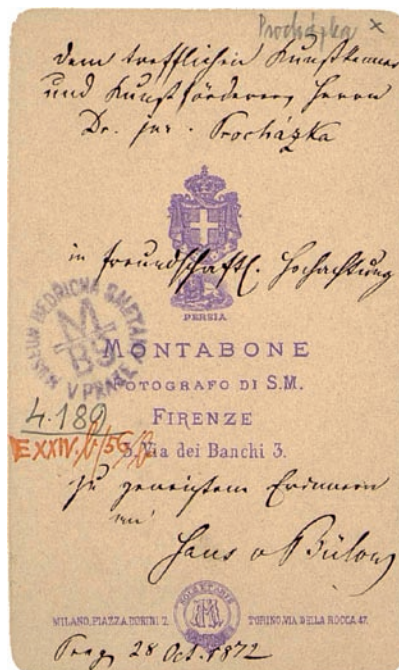 Procházka ×
dem trefflichen Kunstkenner
und Kunstförderer, Herrn
Dr. jur. Procházka
in freundschaftl. Hochachtung
PERSIA
MUSEUM BEDŘICHA SMETANY
MBS
V PRAZE
MONTABONE
FOTOGRAFO DI S.M.
4.189
FIRENZE
EXXIV.
3. Via dei Banchi 3.
zu geneigtem Erinnern
Hans v Bülow
MILANO, PIAZZA DURINI 7. TORINO, VIA DELLA ROCCA 47.
Prag 28 Oct. 1872